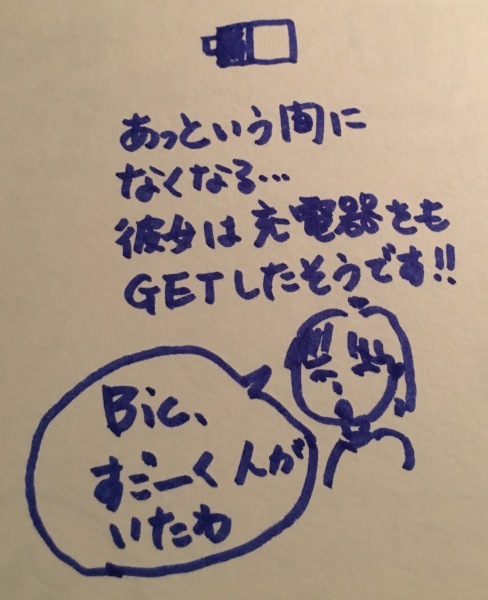 あっという間に
なくなる…
彼女は充電器をも
GETしたそうです!!
Bic、
すごーく人が
いたわ